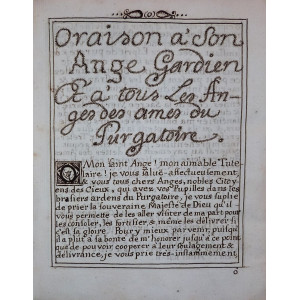 Oraison à Son
Ange Gardien
Et à tous Les An-
ges des ames du
Purgatoire.
O Mon saint Ange! mon aimable Tute-
laire! je vous saluë affectueusement,
& vous tous chers Anges, nobles Citoy-
ens des Cieux, qui avez vos Pupilles dans les
brasiers ardens du Purgatoire, je vous suplie
de prier la souveraine Majesté de Dieu qu'il
vous permette de les aller visiter de ma part pour
les consoler, les fortifier, & même les délivrer si
c'est sa gloire. Pour y mieux parvenir, puisqu'il
a plu à sa bonté de m'honorer jusqu'à ce point
que de pouvoir cooperer à leur soulagement &
délivrance, je vous prie tres-instamment